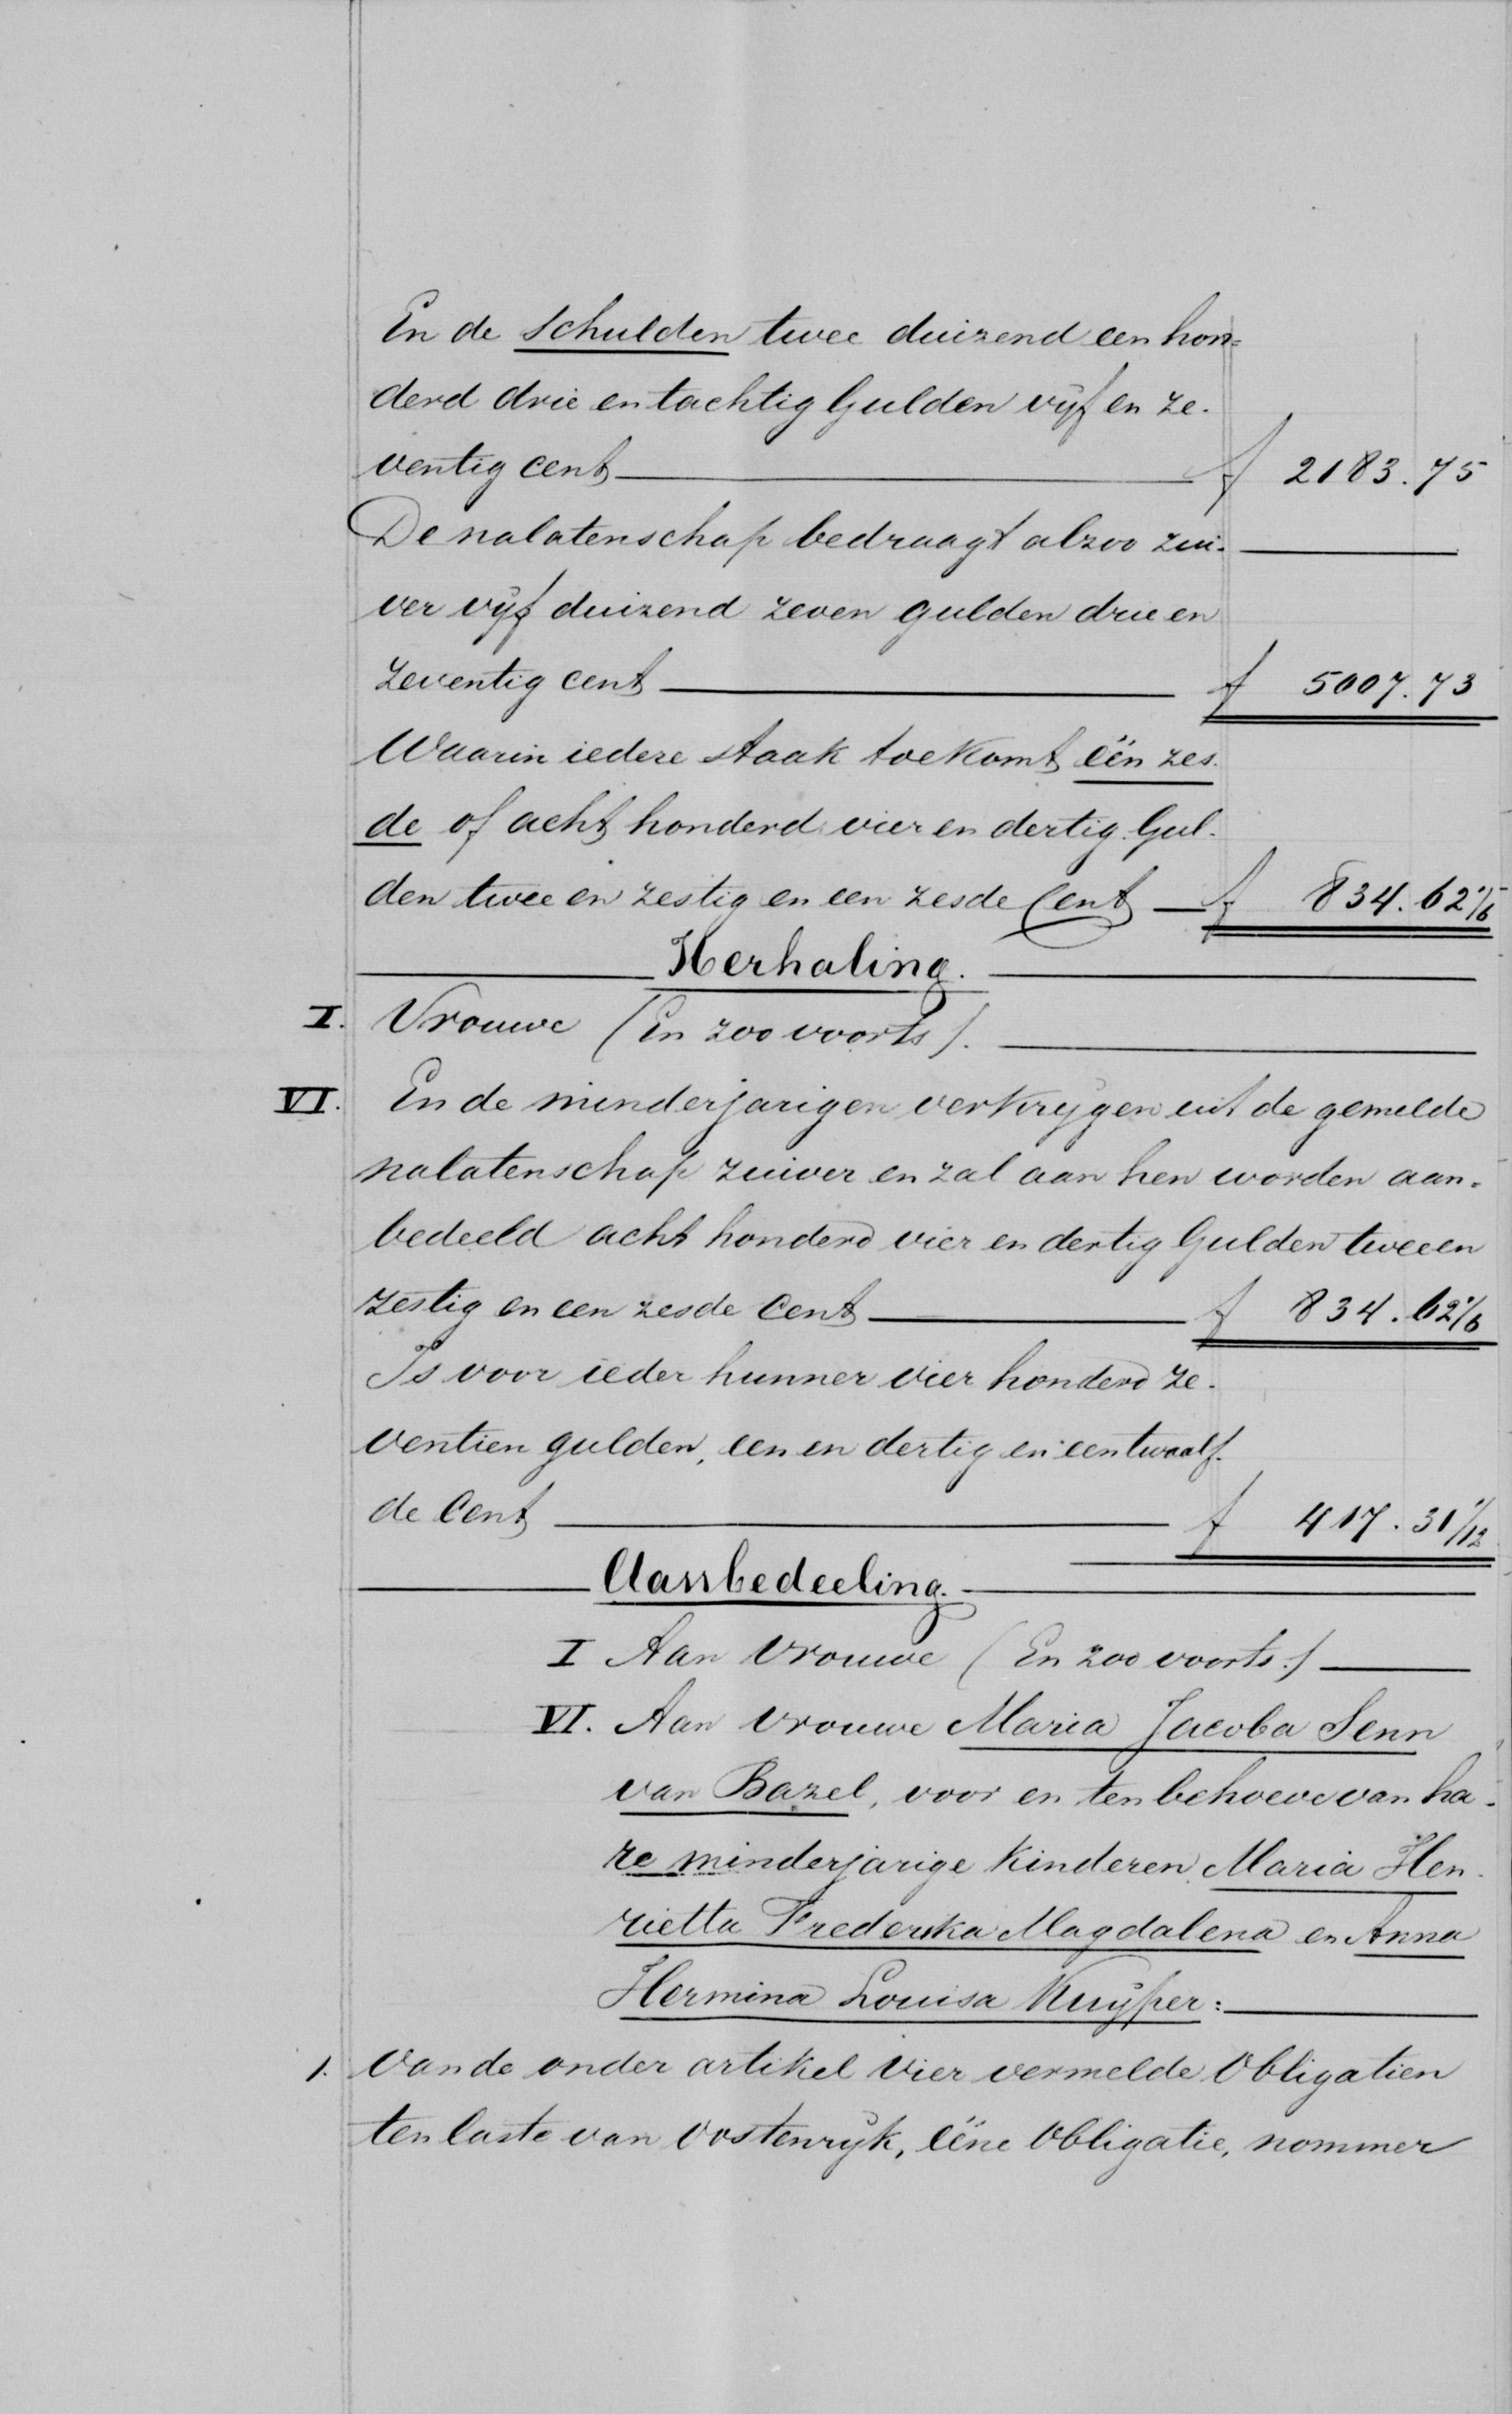 En de schulden twee duizend een hon=
derd drie en tachtig Gulden vijf en ze-
ventig cent f 2183.75
De nalatenschap bedraagt alzoo zui-
ver vijf duizend zeven gulden drie en
zeventig cent f 5007.73
Waarin iedere staak toekomt één zes-
de of acht honderd vier en dertig Gul-
den twee en zestig en een zesde Cent f 834.62 1/6
Herhaling.
I. Vrouwe (En zoo voorts).
VI. En de minderjarigen verkrijgen uit de gemelde
nalatenschap zuiver en zal aan hen worden aan-
bedeeld acht honderd vier en dertig Gulden twee en
zestig en een zesde Cent f 834.62 1/6
Is voor ieder hunner vier honderd ze-
ventien gulden, een en dertig en een twaalf-
de Cent f 417.31 1/12
Aanbedeeling.
I Aan Vrouwe (En zoo voorts.)
VI. Aan Vrouwe Maria Jacoba Senn
van Bazel, voor en ten behoeve van ha-
re minderjarige kinderen Maria Hen-
rietta Frederika Magdalena en Anna
Hermina Louisa Kuijper:
1. Van de onder artikel Vier vermelde Obligatien
ten laste van Oostenrijk, ééne Obligatie, nommer